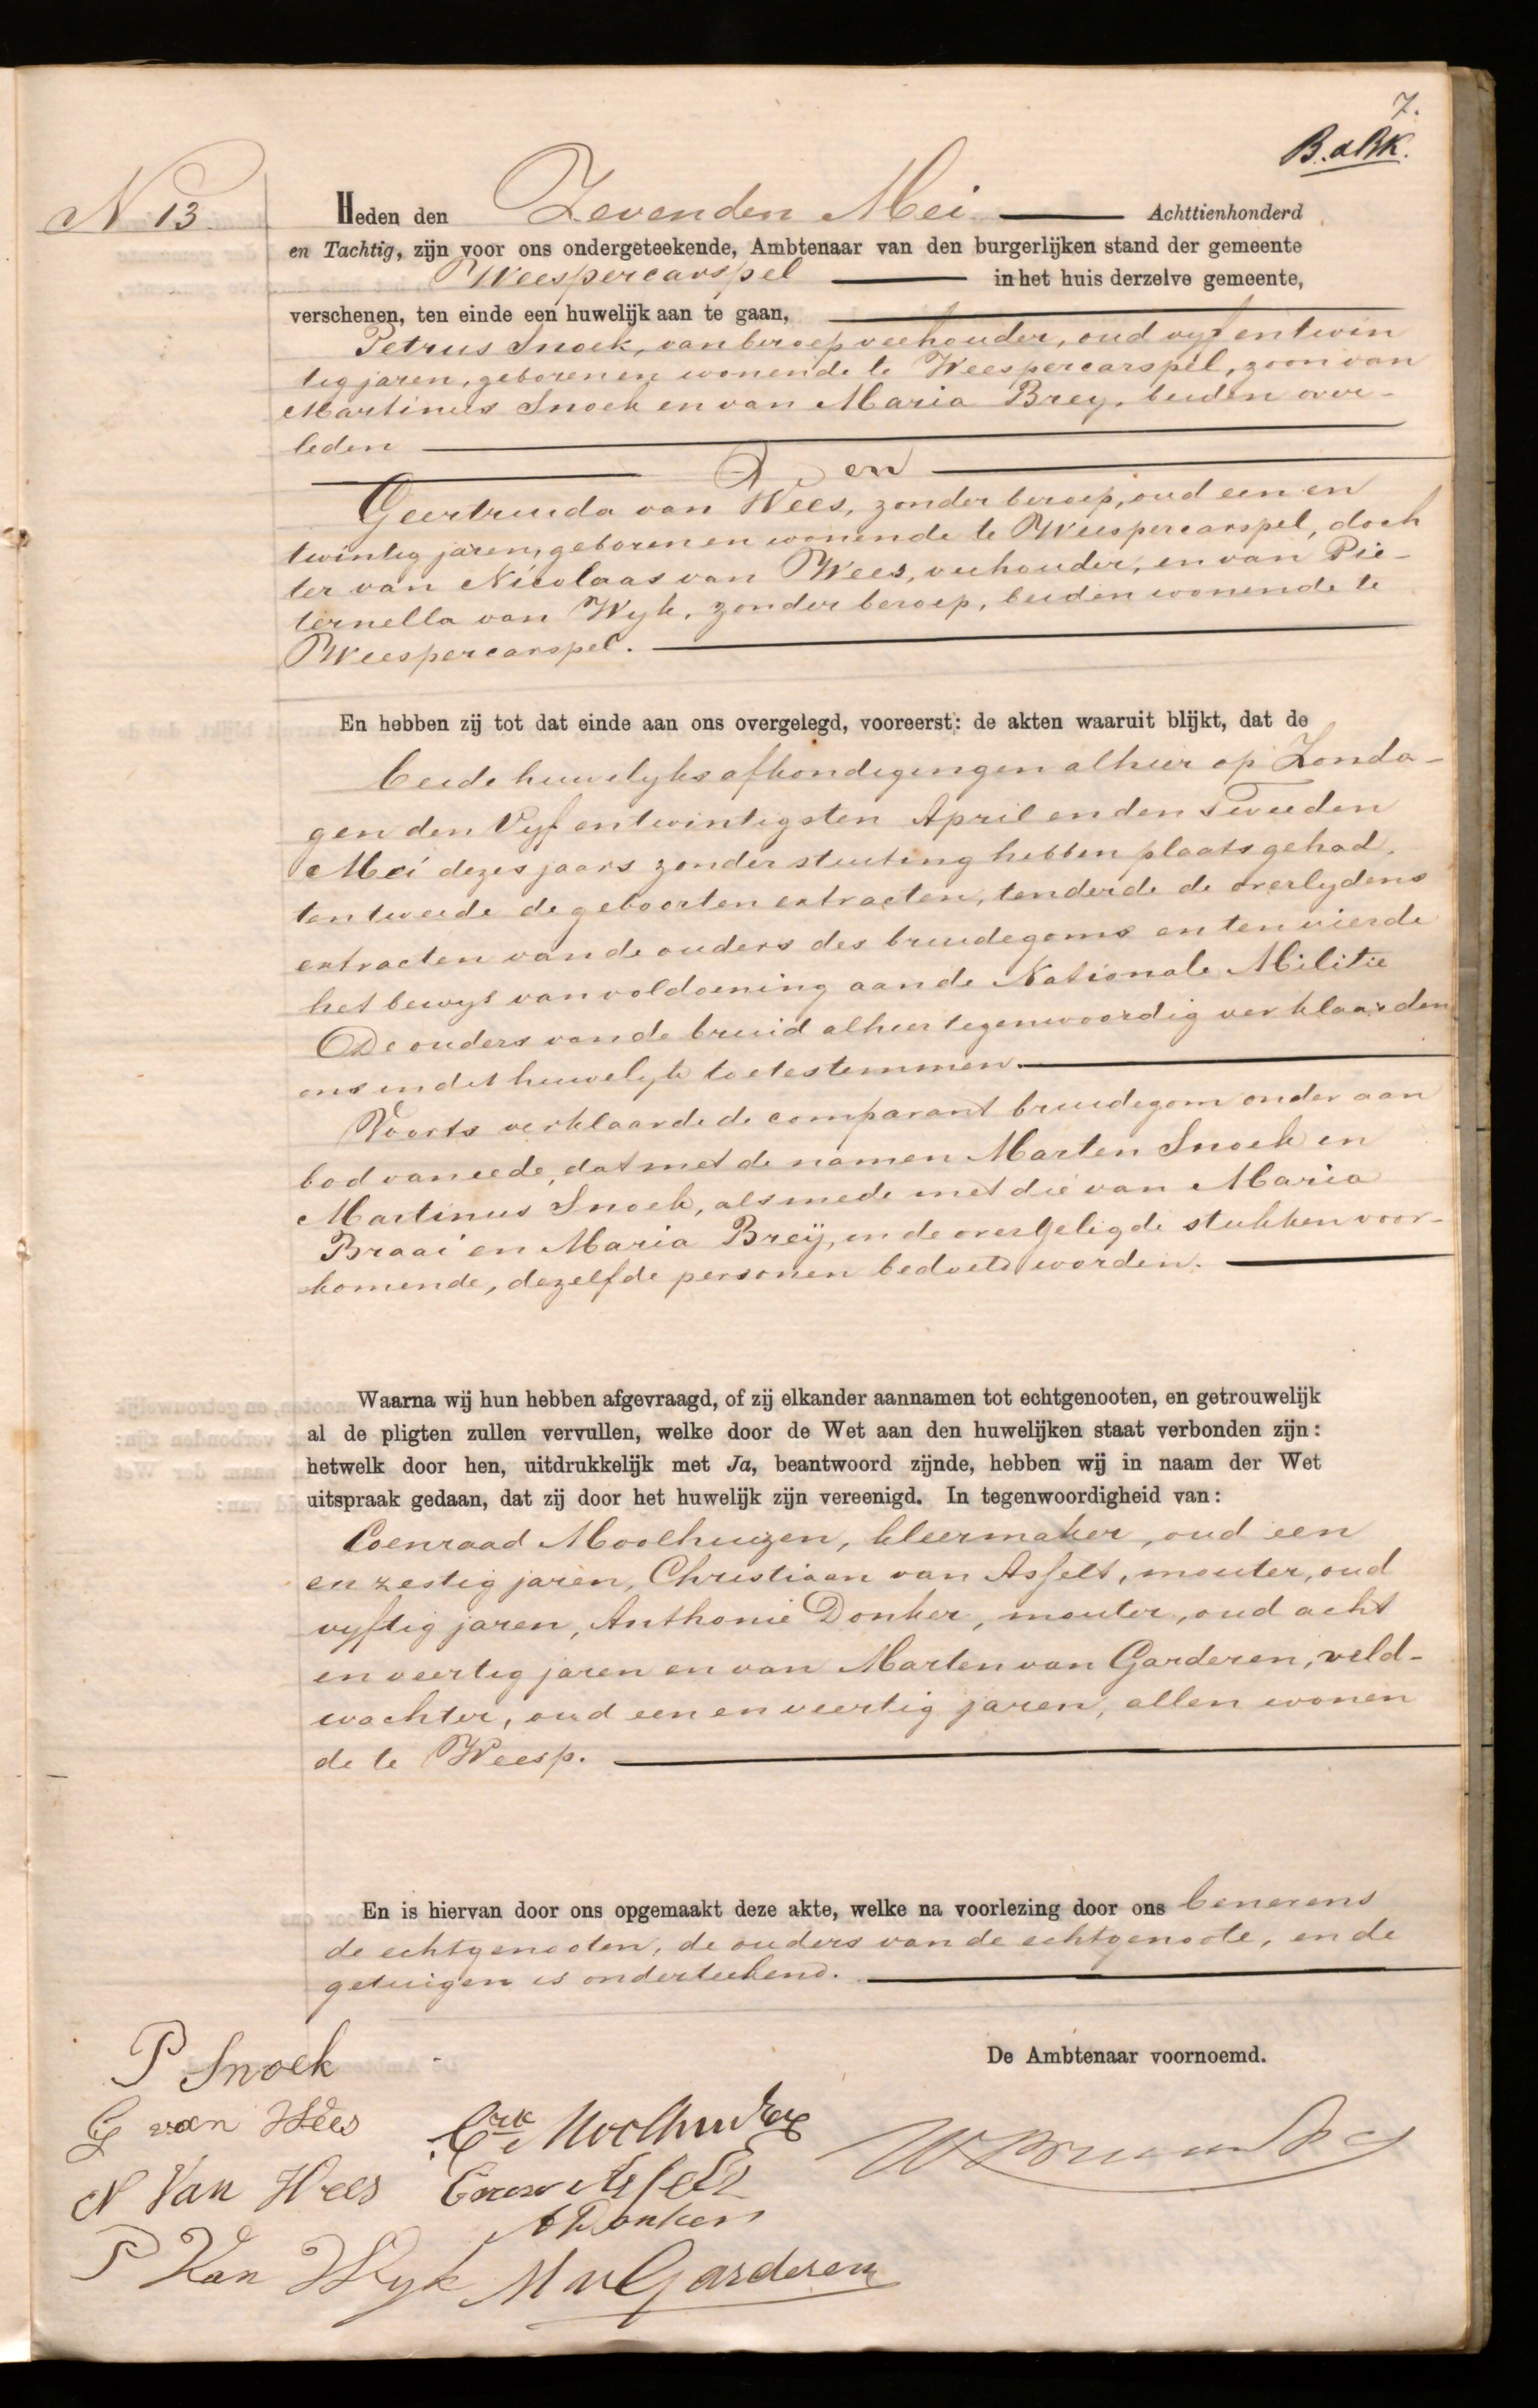 7.
B.aBK.
N 13
Heden den Zevenden Mei Achttienhonderd
en Tachtig, zijn voor ons ondergeteekende, Ambtenaar van den burgerlijken stand der gemeente
Weespercarspel in het huis derzelve gemeente,
verschenen, ten einde een huwelijk aan te gaan,
Petrus Snoek, van beroep veehouder, oud vyf en twin
tig jaren, geboren en wonende te Weespercarspel, zoon van
Martinus Snoek en van Maria Brey, beiden over-
leden
en
Geertruida van Wees, zonder beroep, oud een en
twintig jaren, geboren en wonende te Weespercarspel, doch
ter van Nicolaas van Wees, veehouder, en van Pie-
ternella van Wyk, zonder beroep, beiden wonende te
Weespercarspel.
En hebben zij tot dat einde aan ons overgelegd, vooreerst: de akten waaruit blijkt, dat de
beide huwelyks afkondigingen alhier op Zonda-
gen den Vyf en twintigsten April en den Tweeden
Mei dezes jaars zonder stuiting hebben plaats gehad,
ten tweede de geboorten extracten, ten derde de overlydens
extracten van de ouders des bruidegoms en ten vierde
het bewys van voldoening aan de Nationale Militie
De ouders van de bruid alhier tegenwoordig verklaarden
ons in dit huwelyk toetestemmen.
Voorts verklaarde de comparant bruidegom onder aan
bod van eede, dat met de namen Marten Snoek en
Martinus Snoek, alsmede met die van Maria
Braai en Maria Breÿ, in de overgelegde stukken voor-
komende, dezelfde personen bedoeld worden.
Waarna wij hun hebben afgevraagd, of zij elkander aannamen tot echtgenooten, en getrouwelijk
al de pligten zullen vervullen, welke door de Wet aan den huwelijken staat verbonden zijn:
hetwelk door hen, uitdrukkelijk met Ja, beantwoord zijnde, hebben wij in naam der Wet
uitspraak gedaan, dat zij door het huwelijk zijn vereenigd. In tegenwoordigheid van:
Coenraad Moolhuizen, kleermaker, oud een
en zestig jaren, Christiaan van Asselt, mouter, oud
vyftig jaren, Anthonie Donker, mouter, oud acht
en veertig jaren en van Marten van Garderen, veld-
wachter, oud een en veertig jaren, allen wonen
de te Weesp.
En is hiervan door ons opgemaakt deze akte, welke na voorlezing door ons benevens
de echtgenooten, de ouders van de echtgenoote, en de
getuigen is onderteekend.
De Ambtenaar voornoemd.
P Snoek
G van Wees
N Van Wees
P Van Wyk
A Donker
M v Garderen